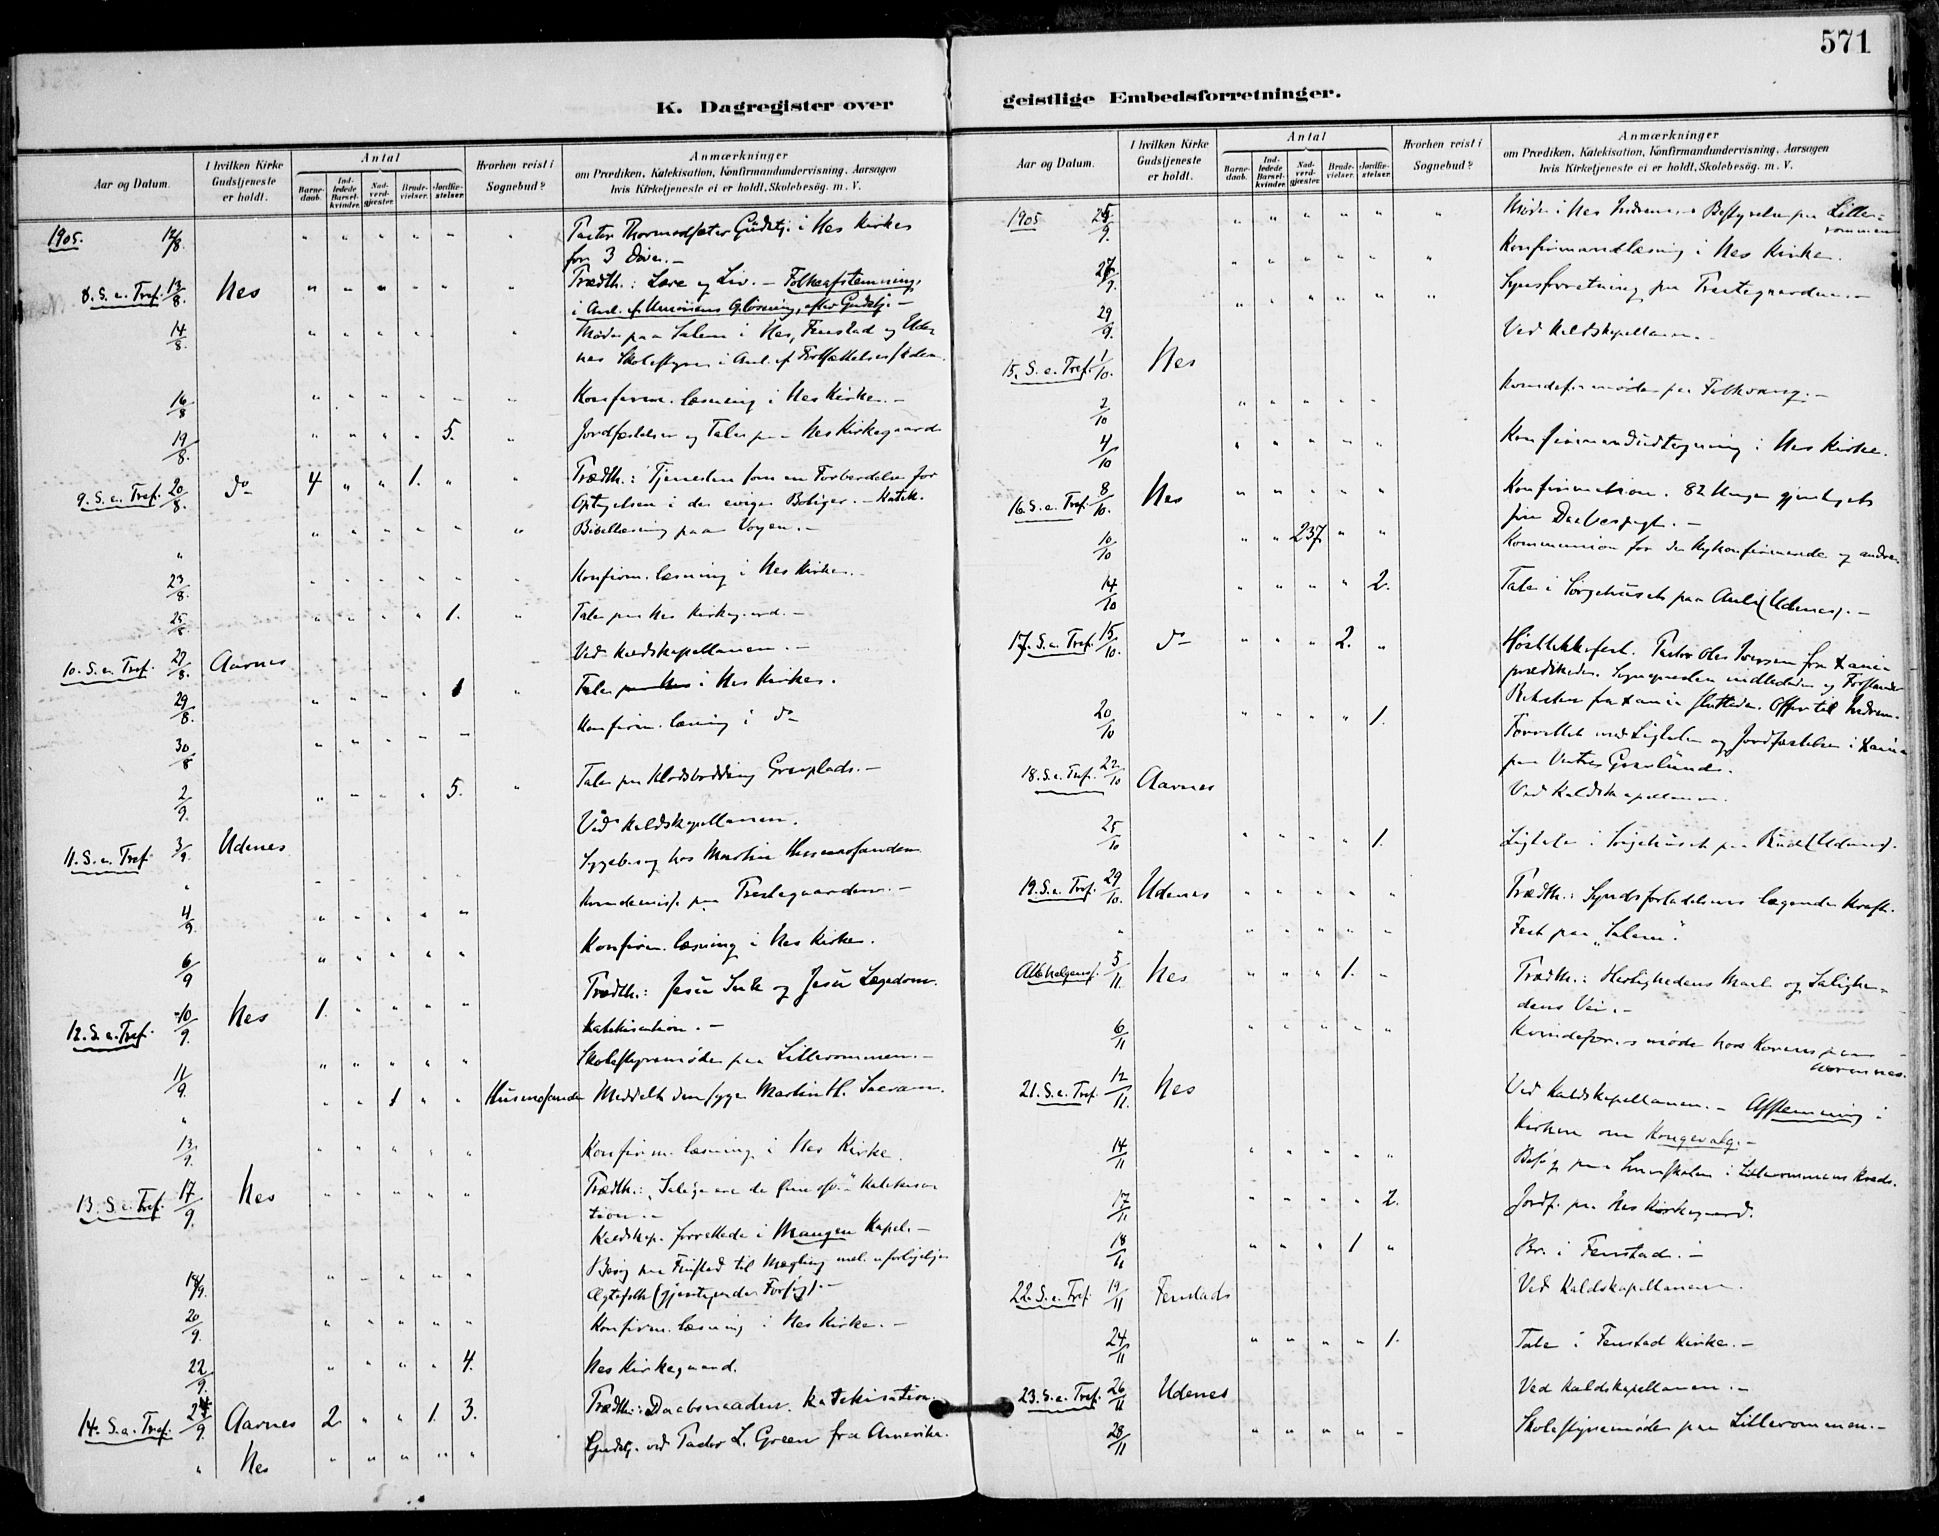 571
K. Dagregister over
geistlige Embedsforretninger.
Aar og Datum.
I hvilken Kirke Gudstjeneste er holdt.
Antal
Barnedaab.
Indledede Barselkvinder.
Nadverdgjæster.
Brudevielser.
Jordfæstelser.
Hvorhen reist i Sognebud?
Anmærkninger
om Prædiken, Katekisation, Konfirmandundervisning, Aarsagen
hvis Kirketjeneste ei er holdt, Skolebesøg. m. V.
1905. 12/8. Pastor Gudstj. i Nes Kirke
for 3
8. S. e. Tref. 13/8. Nes Prædik.: Lære og Liv. - Folkeafstemning,
i Anl. af Unionens Opløsning, efter Gudstj. -
14/8. Møde paa Salem i Nes, Fenstad og Ude-
nes Skolestyre i Anl. af
16/8 Konfirm. læsning i Nes Kirke. -
19/8. 5. Jordfæstelse og Tale paa Nes Kirkegaard
9. S. e. Tref. 20/8. do 4 1. Prædik.: Tjenesten som en Forberedelse for
Optagelsen i de evige Boliger. - Katek.
Bibellæsning paa -
23/8. Konfirm. læsning i Nes Kirke. -
25/8. 1. Tale paa Nes Kirkegaard. -
10. S. e. Tref. 27/8. Aarnes Ved Kaldskapellanen. -
29/8. 1 Tale i Nes Kirke.
30/8 Konfirm. læsning i do
2/9. 5. Tale paa Gravplads. -
11. S. e. Tref. 3/9. Udenes Ved Kaldskapellanen.
Sygebesøg hos Martin Husmosanden
4/9. paa Prestegaarden. -
6/9 Konfirm. læsning i Nes Kirke.
12. S. e. Tref. 10/9. Nes 1. Prædik.: Jesu Suk og Jesu Lægedom.
Katekisation. -
11/9. Skolestyremøde paa Lillerommen. -
1 Husmosanden Meddelt den syge Martin H. Sacram.
13/9. Konfirm. læsning i Nes Kirke.
13. S. e. Tref. 17/9. Nes Prædik.: "Salige ere de Katekisa-
tion. -
Kaldskap. forrettede i Mangen Kapel. -
18/9. Besøg paa til Mægling mel. uforligelige
Ægtefolk (gjentagende Forsøg). -
20/9. Konfirm. læsning i Nes Kirke. -
22/9. 4. Nes Kirkegaard.
14. S. e. Tref. 24/9. Aarnes 2 1. 3. Prædik.: Daabsnaaden. Katekisation.
Nes Gudstj. ved Pastor L. Green fra Amerika.
Aar og Datum.
I hvilken Kirke Gudstjeneste er holdt.
Antal
Barnedaab.
Indledede Barselkvinder.
Nadverdgjæster.
Brudevielser.
Jordfæstelser.
Hvorhen reist i Sognebud?
Anmærkninger
om Prædiken, Katekisation, Konfirmandundervisning, Aarsagen
hvis Kirketjeneste ei er holdt, Skolebesøg. m. V.
1905 25/9. Møde i Nes Indrem. s Bestyrelse paa Lille-
rommen
27/9. Konfirmandlæsning i Nes Kirke.
29/9. Synsforretning paa Prestegaarden. -
15. S. e. Tref. 1/10. Nes Ved Kaldskapellanen. -
2/10 Kvindeforeningsmøde paa Folkvang. -
4/10 Konfirmandudtegning i Nes Kirke.
16. S. e. Tref. 8/10. Nes Konfirmation. 82 Unge gjentoges
sin Daabspagt. -
10/10 237 Kommunion for de Nykonfirmerede og andre.
14/10 2. Tale i Sørgehuset paa Auli (Udenes). -
17. S. e. Tref. 15/10. do 2. Høsttakkefest. Pastor Ole Iversen fra Xania
prædikede. Sognepresten indledede og Forstander
fra Xania sluttede. Offer til Indrem.
20/10 1. Forrettet med Ligtale og Jordfæstelse i Xania
paa Vestre Gravlund.
18. S. e. Tref. 22/10 Aarnes Ved Kaldskapellanen.
25/10 1. Ligtale i Sørgehuset paa (Udenes).
19. S. e. Tref. 29/10. Udenes Prædik.: Syndsforladelsens lægende Kraft.
Fest paa "Salem".
Allehelgensf. 5/11. Nes 1. Prædik.: Herlighedens Maal og Salighe-
dens Vei. -
6/11 møde hos
21. S. e. Tref. 12/11. Nes Ved Kaldskapellanen. - Afstemning i
Kirken om Kongevalg. -
14/11 Besøg paa i Lillerommens Kreds.
17/11 2. Jordf. paa Nes Kirkegaard.
18/11 1 Br. i Fenstad. -
22. S. e. Tref. 19/11 Fenstad Ved Kaldskapellanen.
24/11 1. Tale i Fenstad Kirke. -
23. S. e. Tref. 26/11 Udenes Ved Kaldskapellanen. -
28/11 Skolestyremøde paa Lillerommen. -